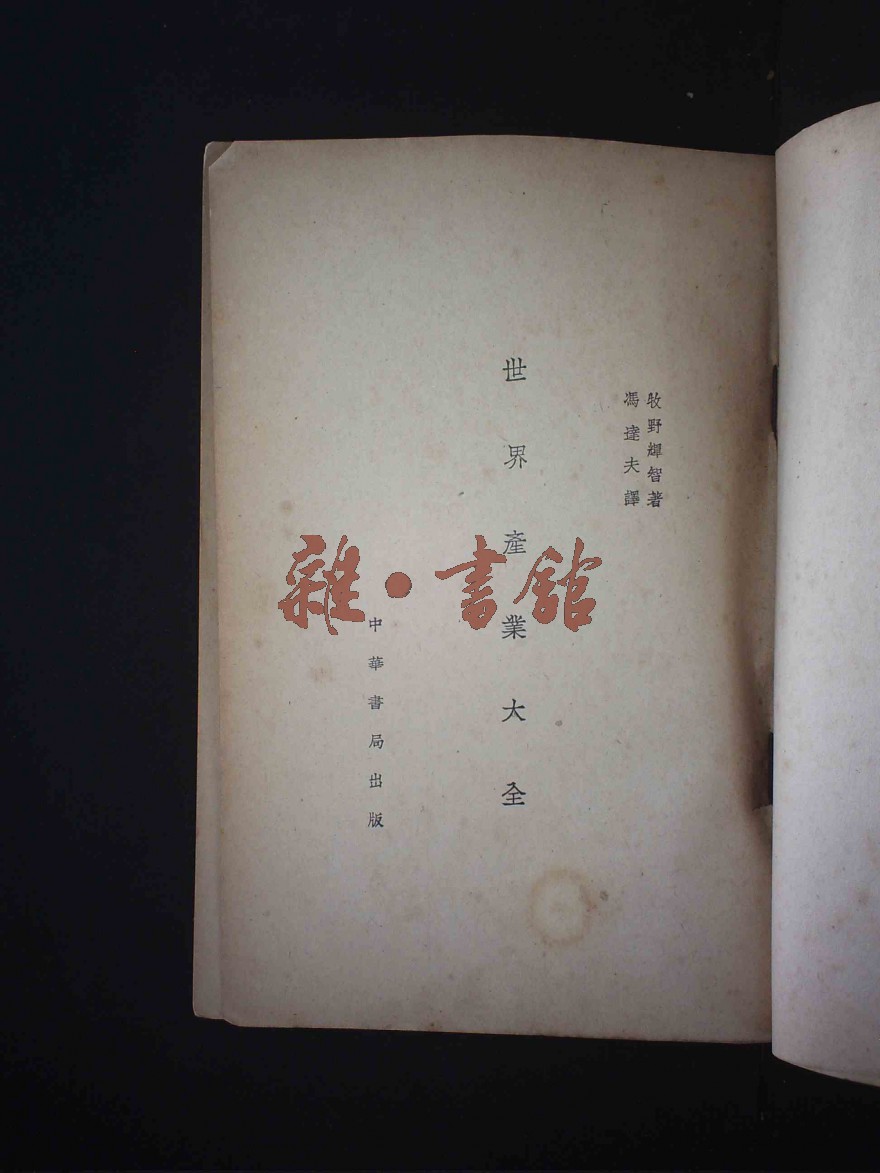 牧野輝智著
馮達夫譯
世界產業大全
中華書局出版
雜·書館